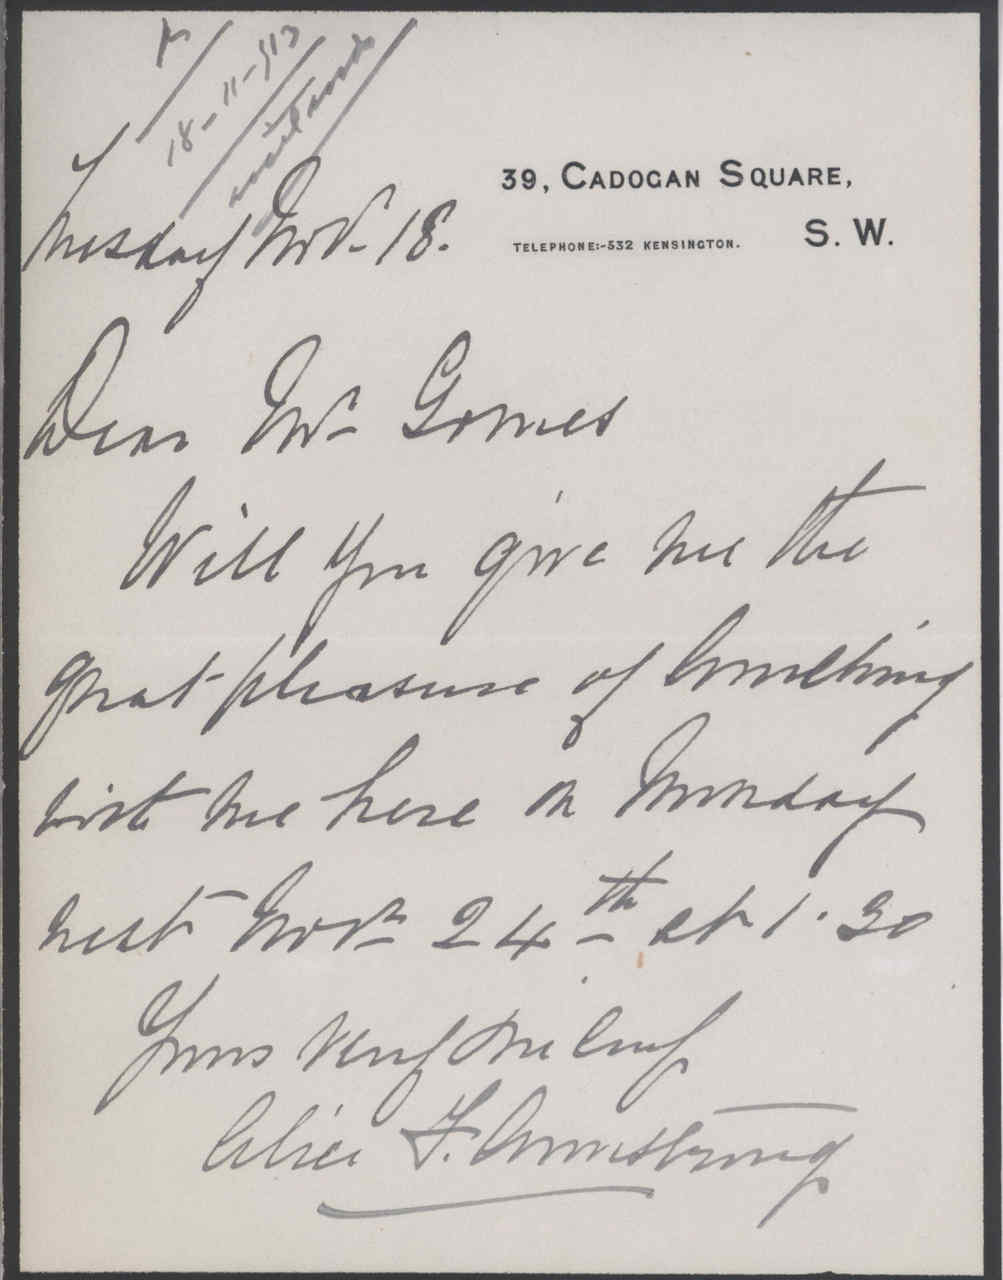 18-11-913
39, CADOGAN SQUARE,
S. W.
TELEPHONE:-532 KENSINGTON.
Tuesday Nov. 18.
Dear Mr Gomes
Will you give me the
great pleasure of lunching
with me here on Monday
next Novr 24th at 1.30
Yours very sincerely
Alice F. Armstrong